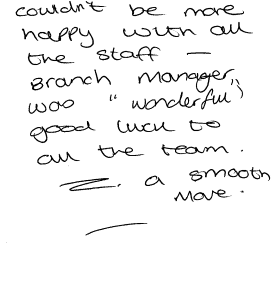 couldn't be more
happy with all
the staff —
Branch manager,
was "wonderful"
good luck to
all the team.
a smooth
move.